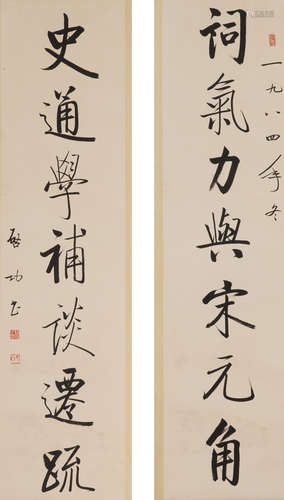 詞氣力與宋元角
一九八四年冬
史通學補談遷疏
啟功書